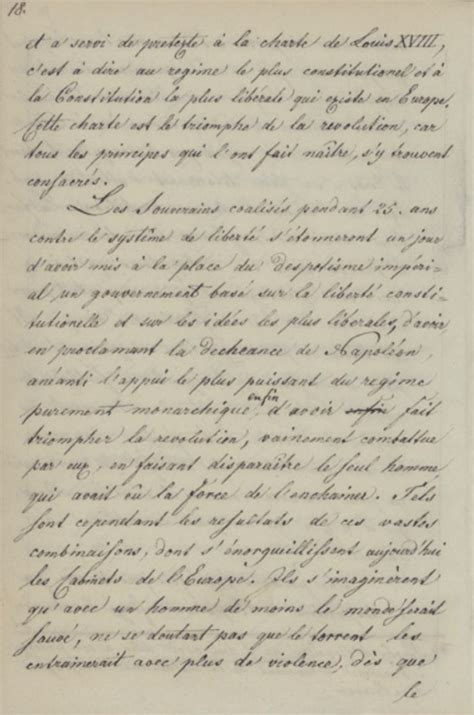 18.
et a servi de pretexte à la charte de Louis XVIII,
c'est à dire au regime le plus constitutionel et à
la Constitution la plus libérale qui existe en Europe.
Cette charte est le triomphe de la revolution, car
tous les principes qui l'ont fait naître, s'y trouvent
consacrés.
Les Souverains coalisés pendant 25. ans
contre le systême de liberté s'étonneront un jour
d'avoir mis à la place du despotisme impéri-
al un gouvernement basé sur la liberté consti-
tutionelle et sur les idées les plus libérales, d'avoir
en proclamant la decheance de Napoléon,
anéanti l'appui le plus puissant du regime
purement monarchique, enfin d'avoir enfin fait
triompher la revolution, vainement combattue
par eux, en faisant disparaître le seul homme
qui avait eu la force de l'enchainer. Tels
sont cependant les resultats de ces vastes
combinaisons, dont s'énorguillissent aujourd'hui
les Cabinets de l'Europe. Ils s'imaginèrent
qu'avec un homme de moins le monde serait
sauvé, ne se doutant pas que le torrent les
entrainerait avec plus de violence, dès que
le